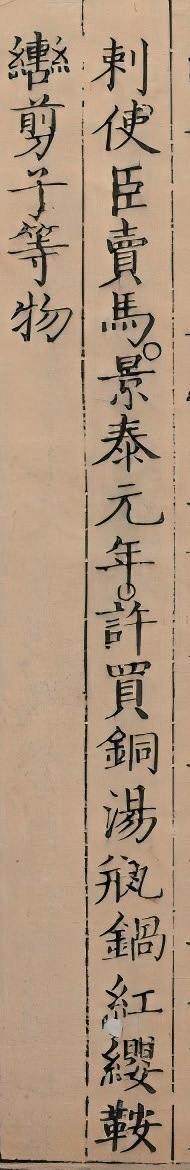 剌使臣賣馬○景泰元年○許買銅湯瓶鍋紅纓鞍
轡剪子等物